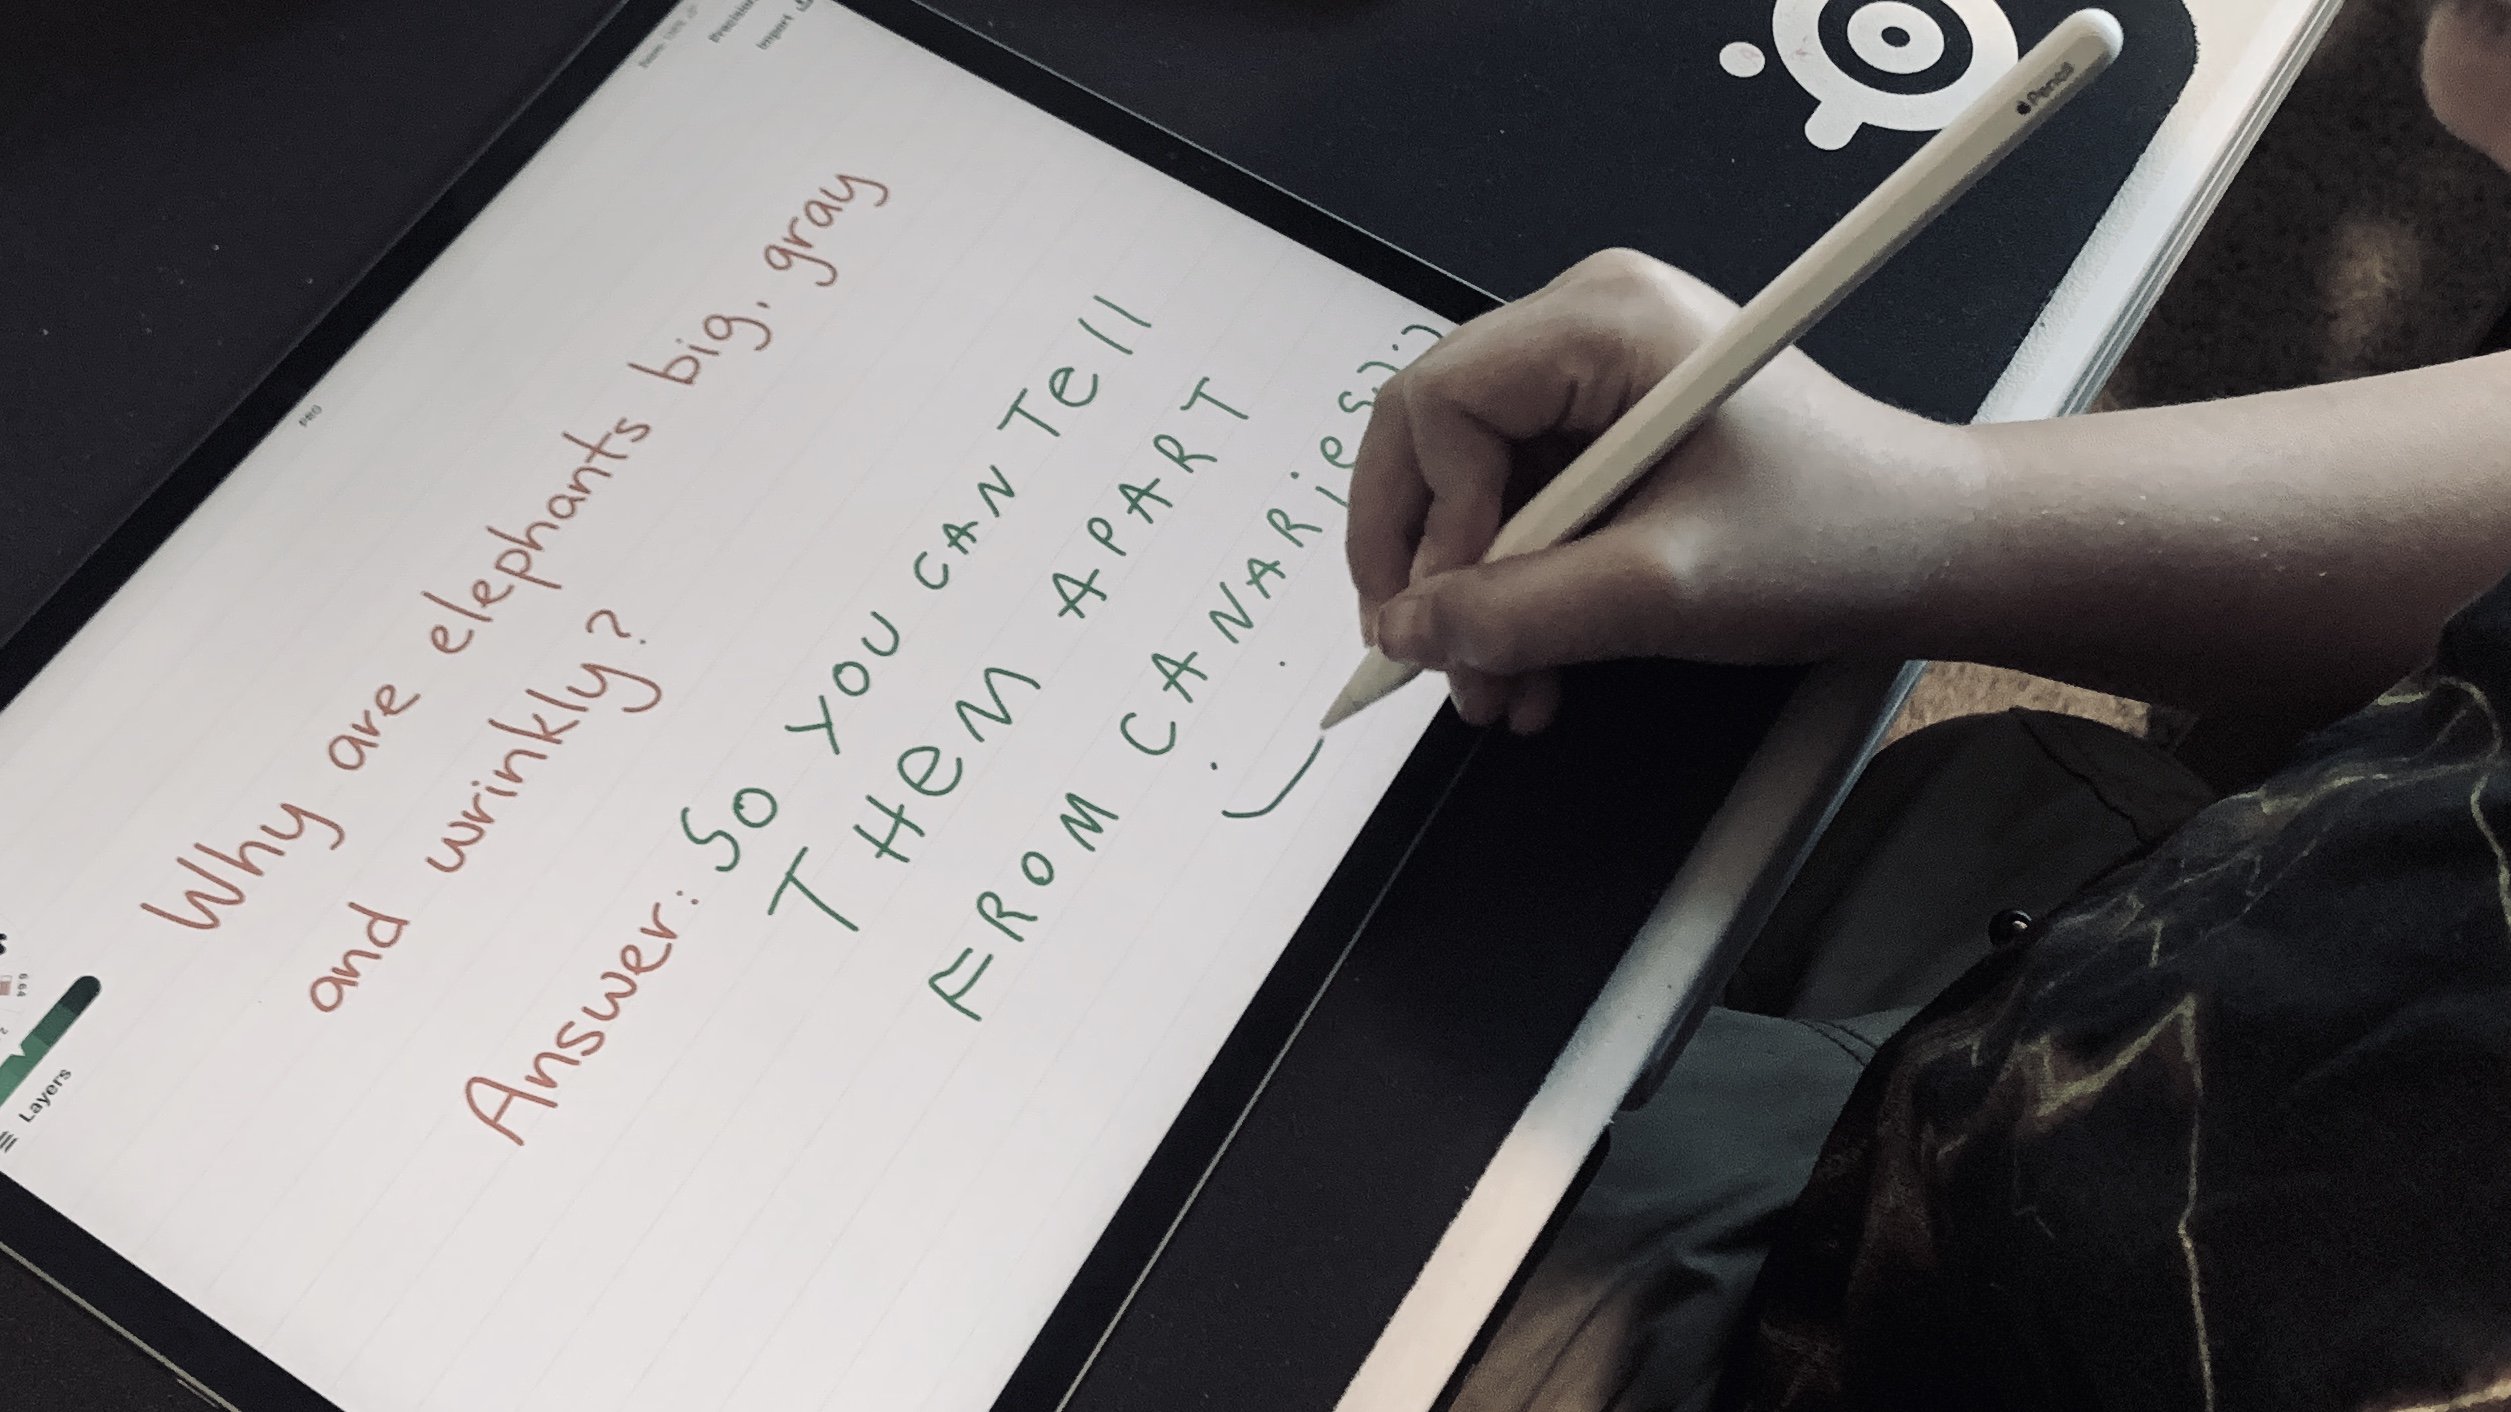 Why are elephants big, gray
and wrinkly?
Answer: SO YOU CAN Tell
THeM APART
FROM CANARies :)
Import
PRO
6.64
2
Layers
Pencil